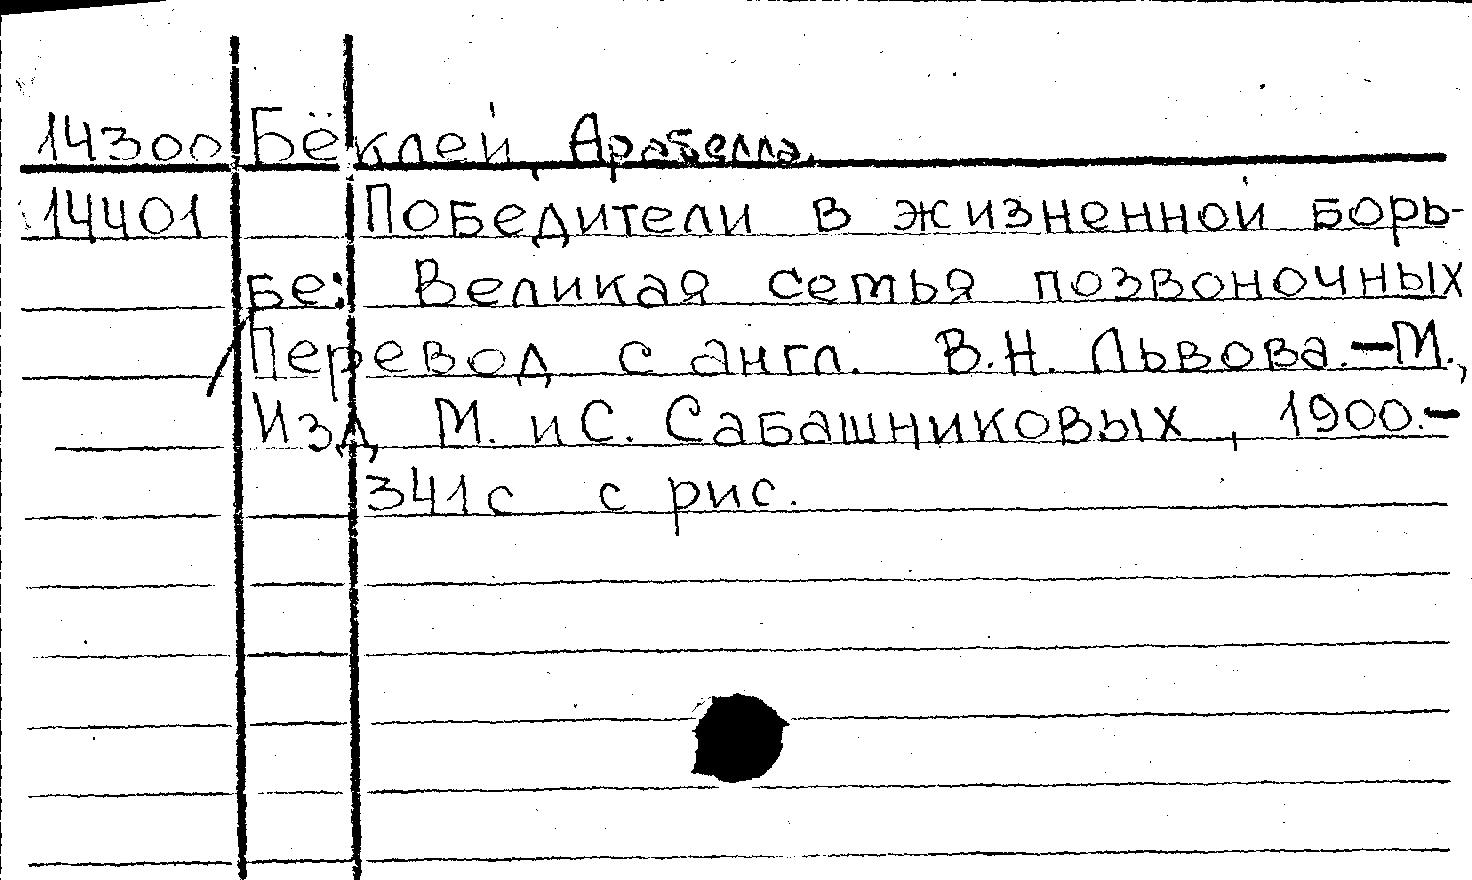 14300 Бёклей, Арабелла.
14401 Победители в жизненной борь-
бе: Великая семья позвоночных
/Перевод с англ. В.Н. Львова.-М.,
Изд М. и С. Сабашниковых, 1900.-
341с с рис.